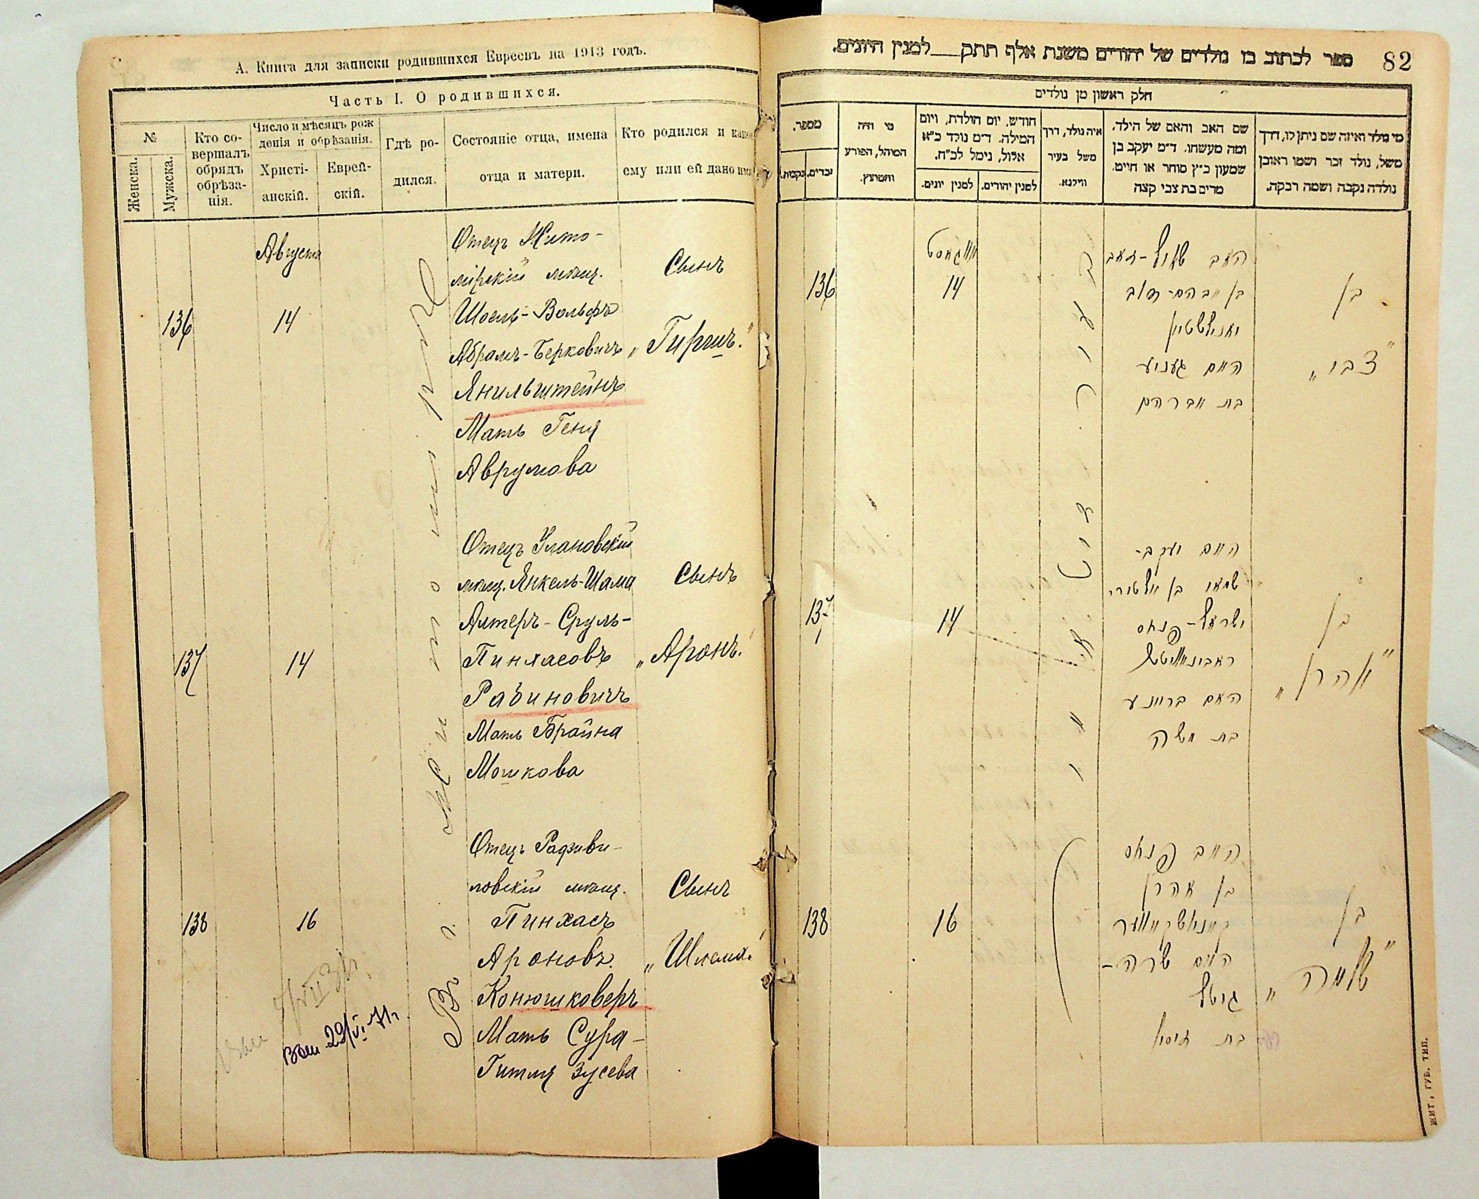 А. Книга для записки родившихся Евреевъ на 1913 годъ.
Часть I. О родившихся.
№
Женска.
Мужска.
Кто со-
вершалъ
обрядъ
обрѣза-
нія.
Число и мѣсяцъ рож
денія и обрѣзанія.
Христі-
анскій.
Еврей-
скій.
Гдѣ ро-
дился.
Состояніе отца, имена
отца и матери.
Кто родился и како
ему или ей дано имя
Августа
136
14
Отецъ Жито-
мірскій мѣщ.
Шоель-Вольфъ
Абрамъ-Берковичъ
Янильштейнъ
Мать Геня
Аврумова
Сынъ
„Гиршъ“
137
14
Отецъ Улановскій
мѣщ. Янкель-Шама
Алтеръ-Сруль-
Пинхасовъ
Рабиновичъ
Мать Брайна
Мошкова
Сынъ
„Аронъ“
138
16
Отецъ Радзиви-
ловскій мѣщ.
Пинхасъ
Ароновъ
Конюшковеръ
Мать Сура-
Гитля Зусева
Сынъ
„Шлема“
Въ г. Житомирѣ
Выд 29/VI 71г.
82
ספר לכתוב בו נולדים של יהודים משנת אלף תתק___למנין היונים.
חלק ראשון מן נולדים
מספר.
זכרים.
נקבות.
מי היה
המוהל, הפורע
והמוצץ.
חודש, יום הולדת, ויום
המילה. ד״מ נולד כ״א
אלול, נימל לכ״ח.
למנין יונים.
למנין יהודים.
איה נולד, דרך
משל בעיר
ווילנא.
שם האב והאם של הילד,
ומה מעשהו. ד״מ יעקב בן
שמעון כ״ץ סוחר או חיים.
מרים בת צבי קצה
מי נולד ואיזה שם ניתן לו, דרך
משל, נולד זכר ושמו ראובן
נולדה נקבה ושמה רבקה.
אווגוסט
136
14
בן
„צבי“
האם געניע
בת אברהם
137
14
האב יעקב-
ישראל-פנחס
ראבינאוויטש
האם בריינע
בת משה
בן
„אהרן“
138
16
האב פנחס
בן אהרן
קאניושקאווער
האם שרה-
גיטל
בת זוסיא
בן
„שלמה“
ЖИТ. ГУБ. ТИП.